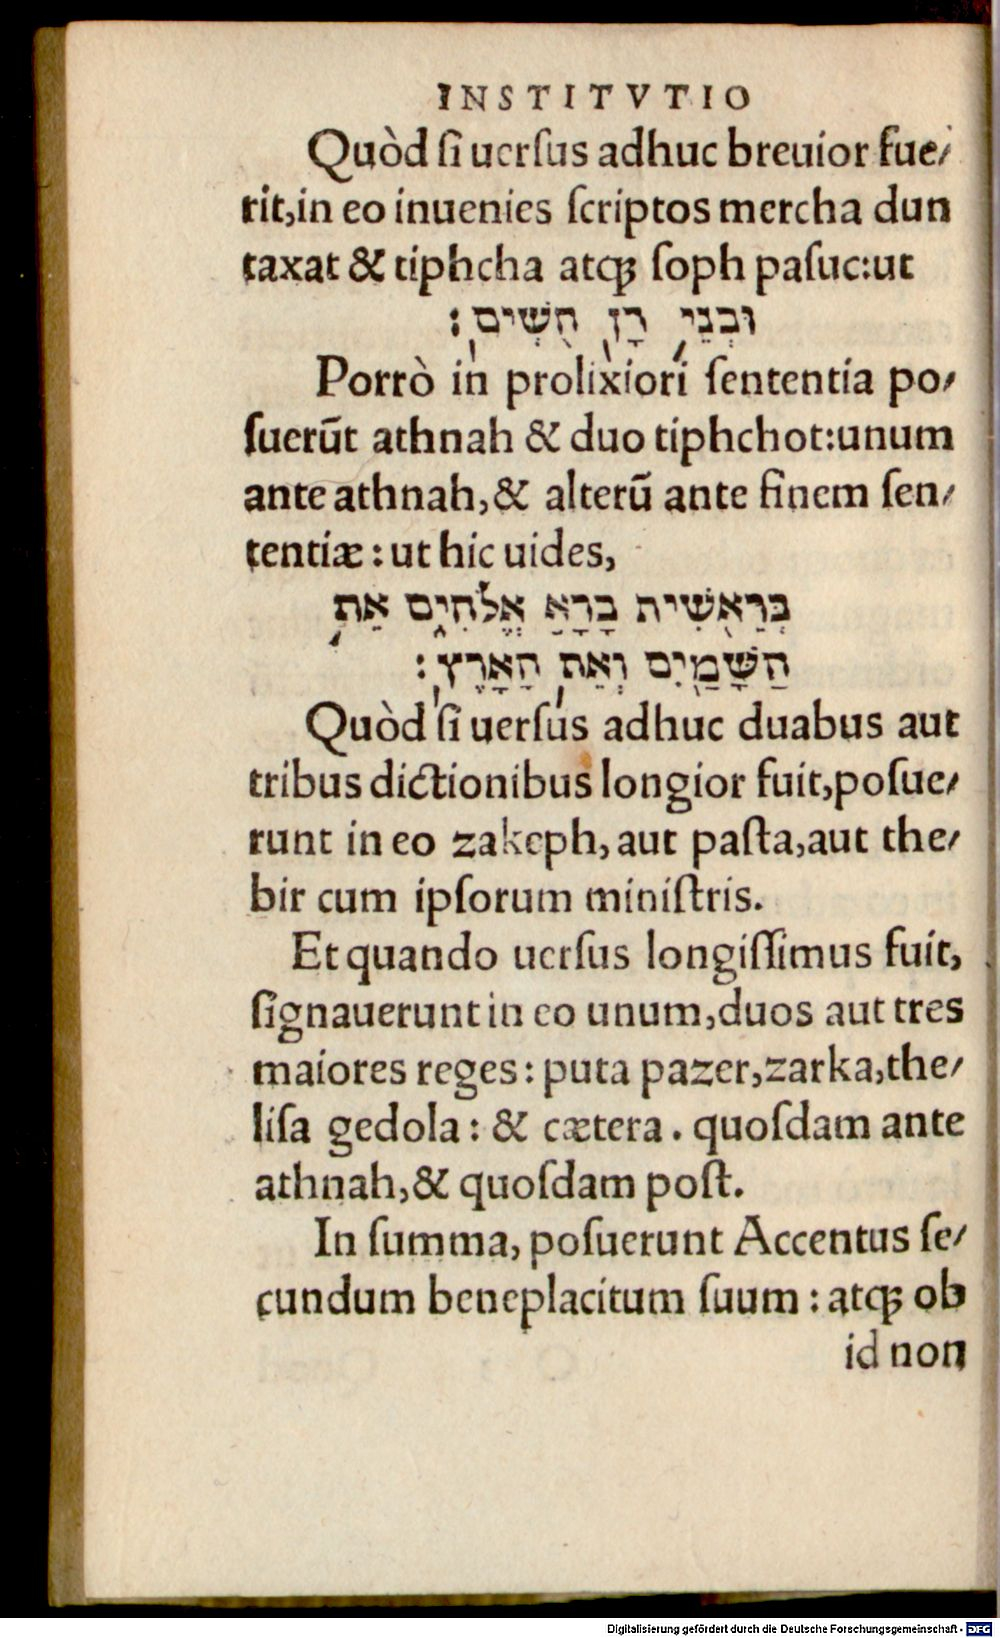 INSTITVTIO
Quòd ſi uerſus adhuc breuior fue/
rit,in eo inuenies ſcriptos mercha dun
taxat & tiphcha atqꝫ ſoph paſuc:ut
וּבְנֵי רָן חֻשִׁים׃
Porrò in prolixiori ſententia po/
ſuerūt athnah & duo tiphchot:unum
ante athnah,& alterū ante finem ſen/
tentiæ : ut hic uides,
בְּרֵאשִׁית בָּרָא אֱלֹהִים אֵת
הַשָּׁמַיִם וְאֵת הָאָרֶץ׃
Quòd ſi uerſus adhuc duabus aut
tribus dictionibus longior fuit,poſue/
runt in eo zakeph, aut paſta,aut the/
bir cum ipſorum miniſtris.
Et quando uerſus longiſſimus fuit,
ſignauerunt in eo unum,duos aut tres
maiores reges : puta pazer,zarka,the/
liſa gedola : & cætera . quoſdam ante
athnah,& quoſdam poſt.
In ſumma, poſuerunt Accentus ſe/
cundum beneplacitum ſuum : atqꝫ ob
id non
Digitalisierung gefördert durch die Deutsche Forschungsgemeinschaft - DFG